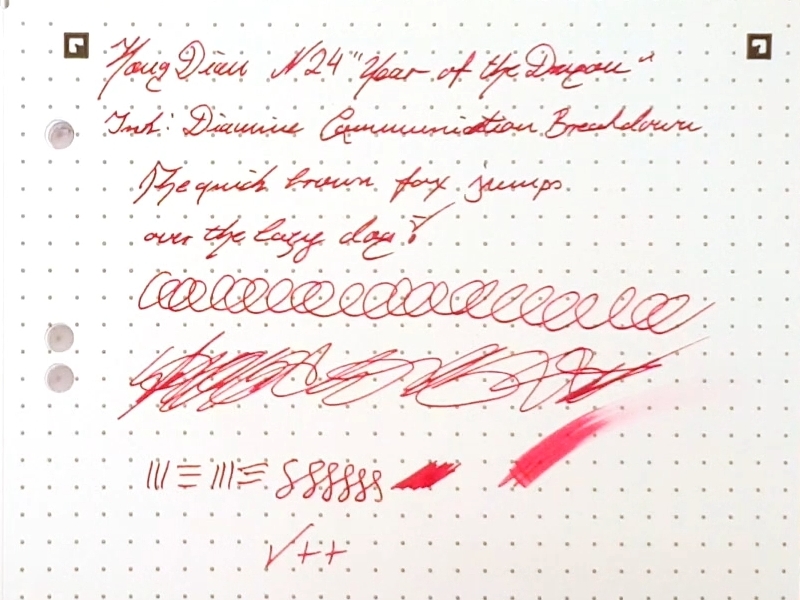 Hong Dian N24 "Year of the Dragon"
Ink: Diamine Communication Breakdown
The quick brown fox jumps
over the lazy dog!
✓++